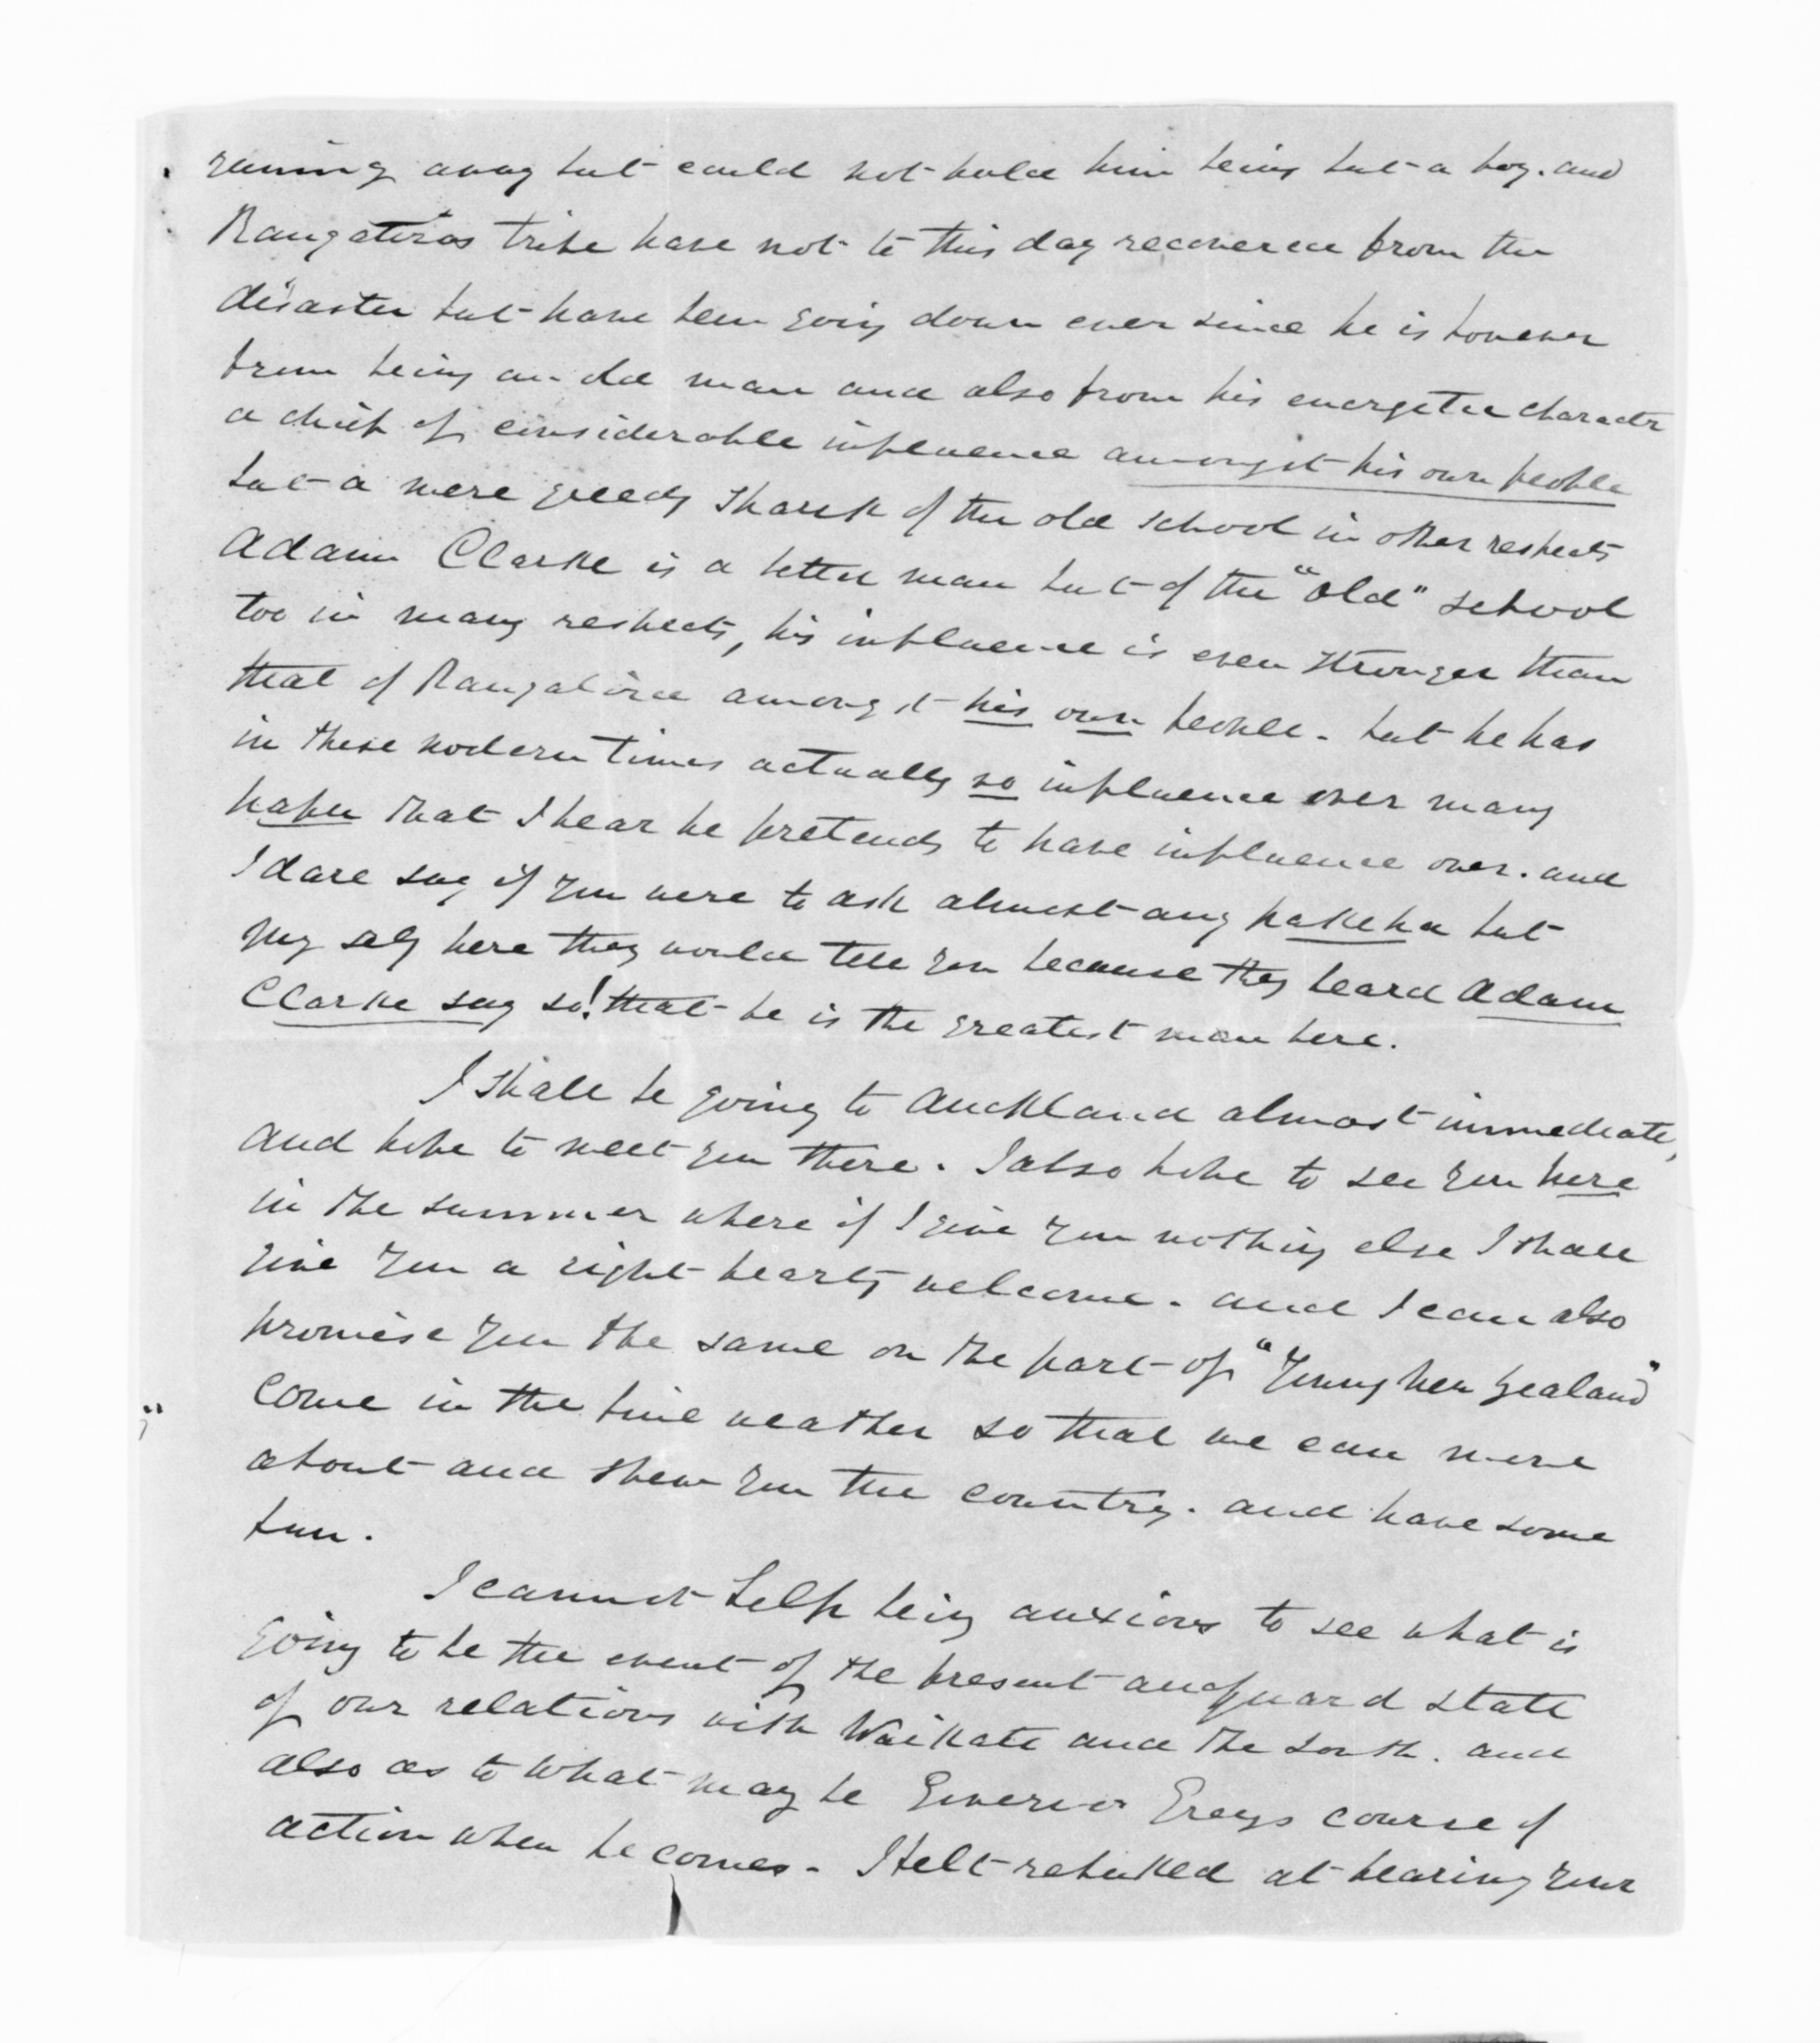 runing away but could not hold him being but a boy. and
Rangatiras tribe have not to this day recovered from the
disaster but have been going down ever since he is however
from being an old man and also from his energetic character
a chief of considerable influence amongst his own people
but a mere greedy shark of the old school in other respects
Adam Clarke is a better man but of the "old" school
too in many respects, his influence is even stronger than
that of Rangatira amongst his own people. but he has
in these modern times actually no influence over many
hapu that I hear he pretends to have influence over. and
I dare say if you were to ask almost any pakeha but
my self here they would tell you because they heard Adam
Clarke say so! that he is the greatest man here.
I shall be going to Auckland almost immediate,
and hope to meet you there. I also hope to see you here
in the summer where if I give you nothing else I shall
give you a right hearty welcome. and I can also
promise you the same on the part of "Young New Zealand"
come in the fine weather so that we can move
about and shew you the country. and have some
fun.
I cannot help being anxious to see what is
going to be the event of the present auquard state
of our relations with Waikato and the South. and
also as to what may be Governor Greys course of
action when he comes. I felt rebuked at hearing your